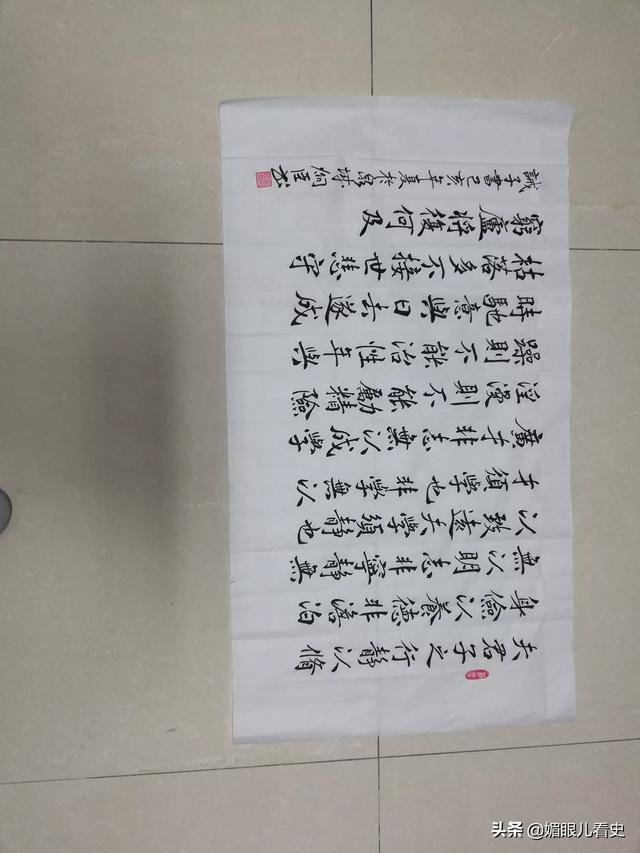 夫君子之行靜以脩
身儉以養德非澹泊
無以明志非寧靜無
以致遠夫學須靜也
才須學也非學無以
廣才非志無以成學
淫漫則不能勵精險
躁則不能治性年與
時馳意與日去遂成
枯落多不接世悲守
窮廬將復何及
誡子書己亥年夏於泉城
头条 @媚眼儿看史